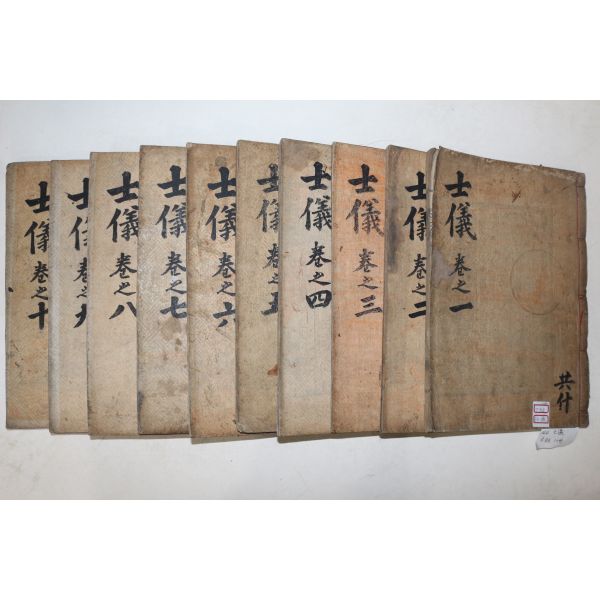 士儀 卷之一
共什
士儀 卷之二
士儀 卷之三
士儀 卷之四
士儀 卷之五
士儀 卷之六
士儀 卷之七
士儀 卷之八
士儀 卷之九
士儀 卷之十